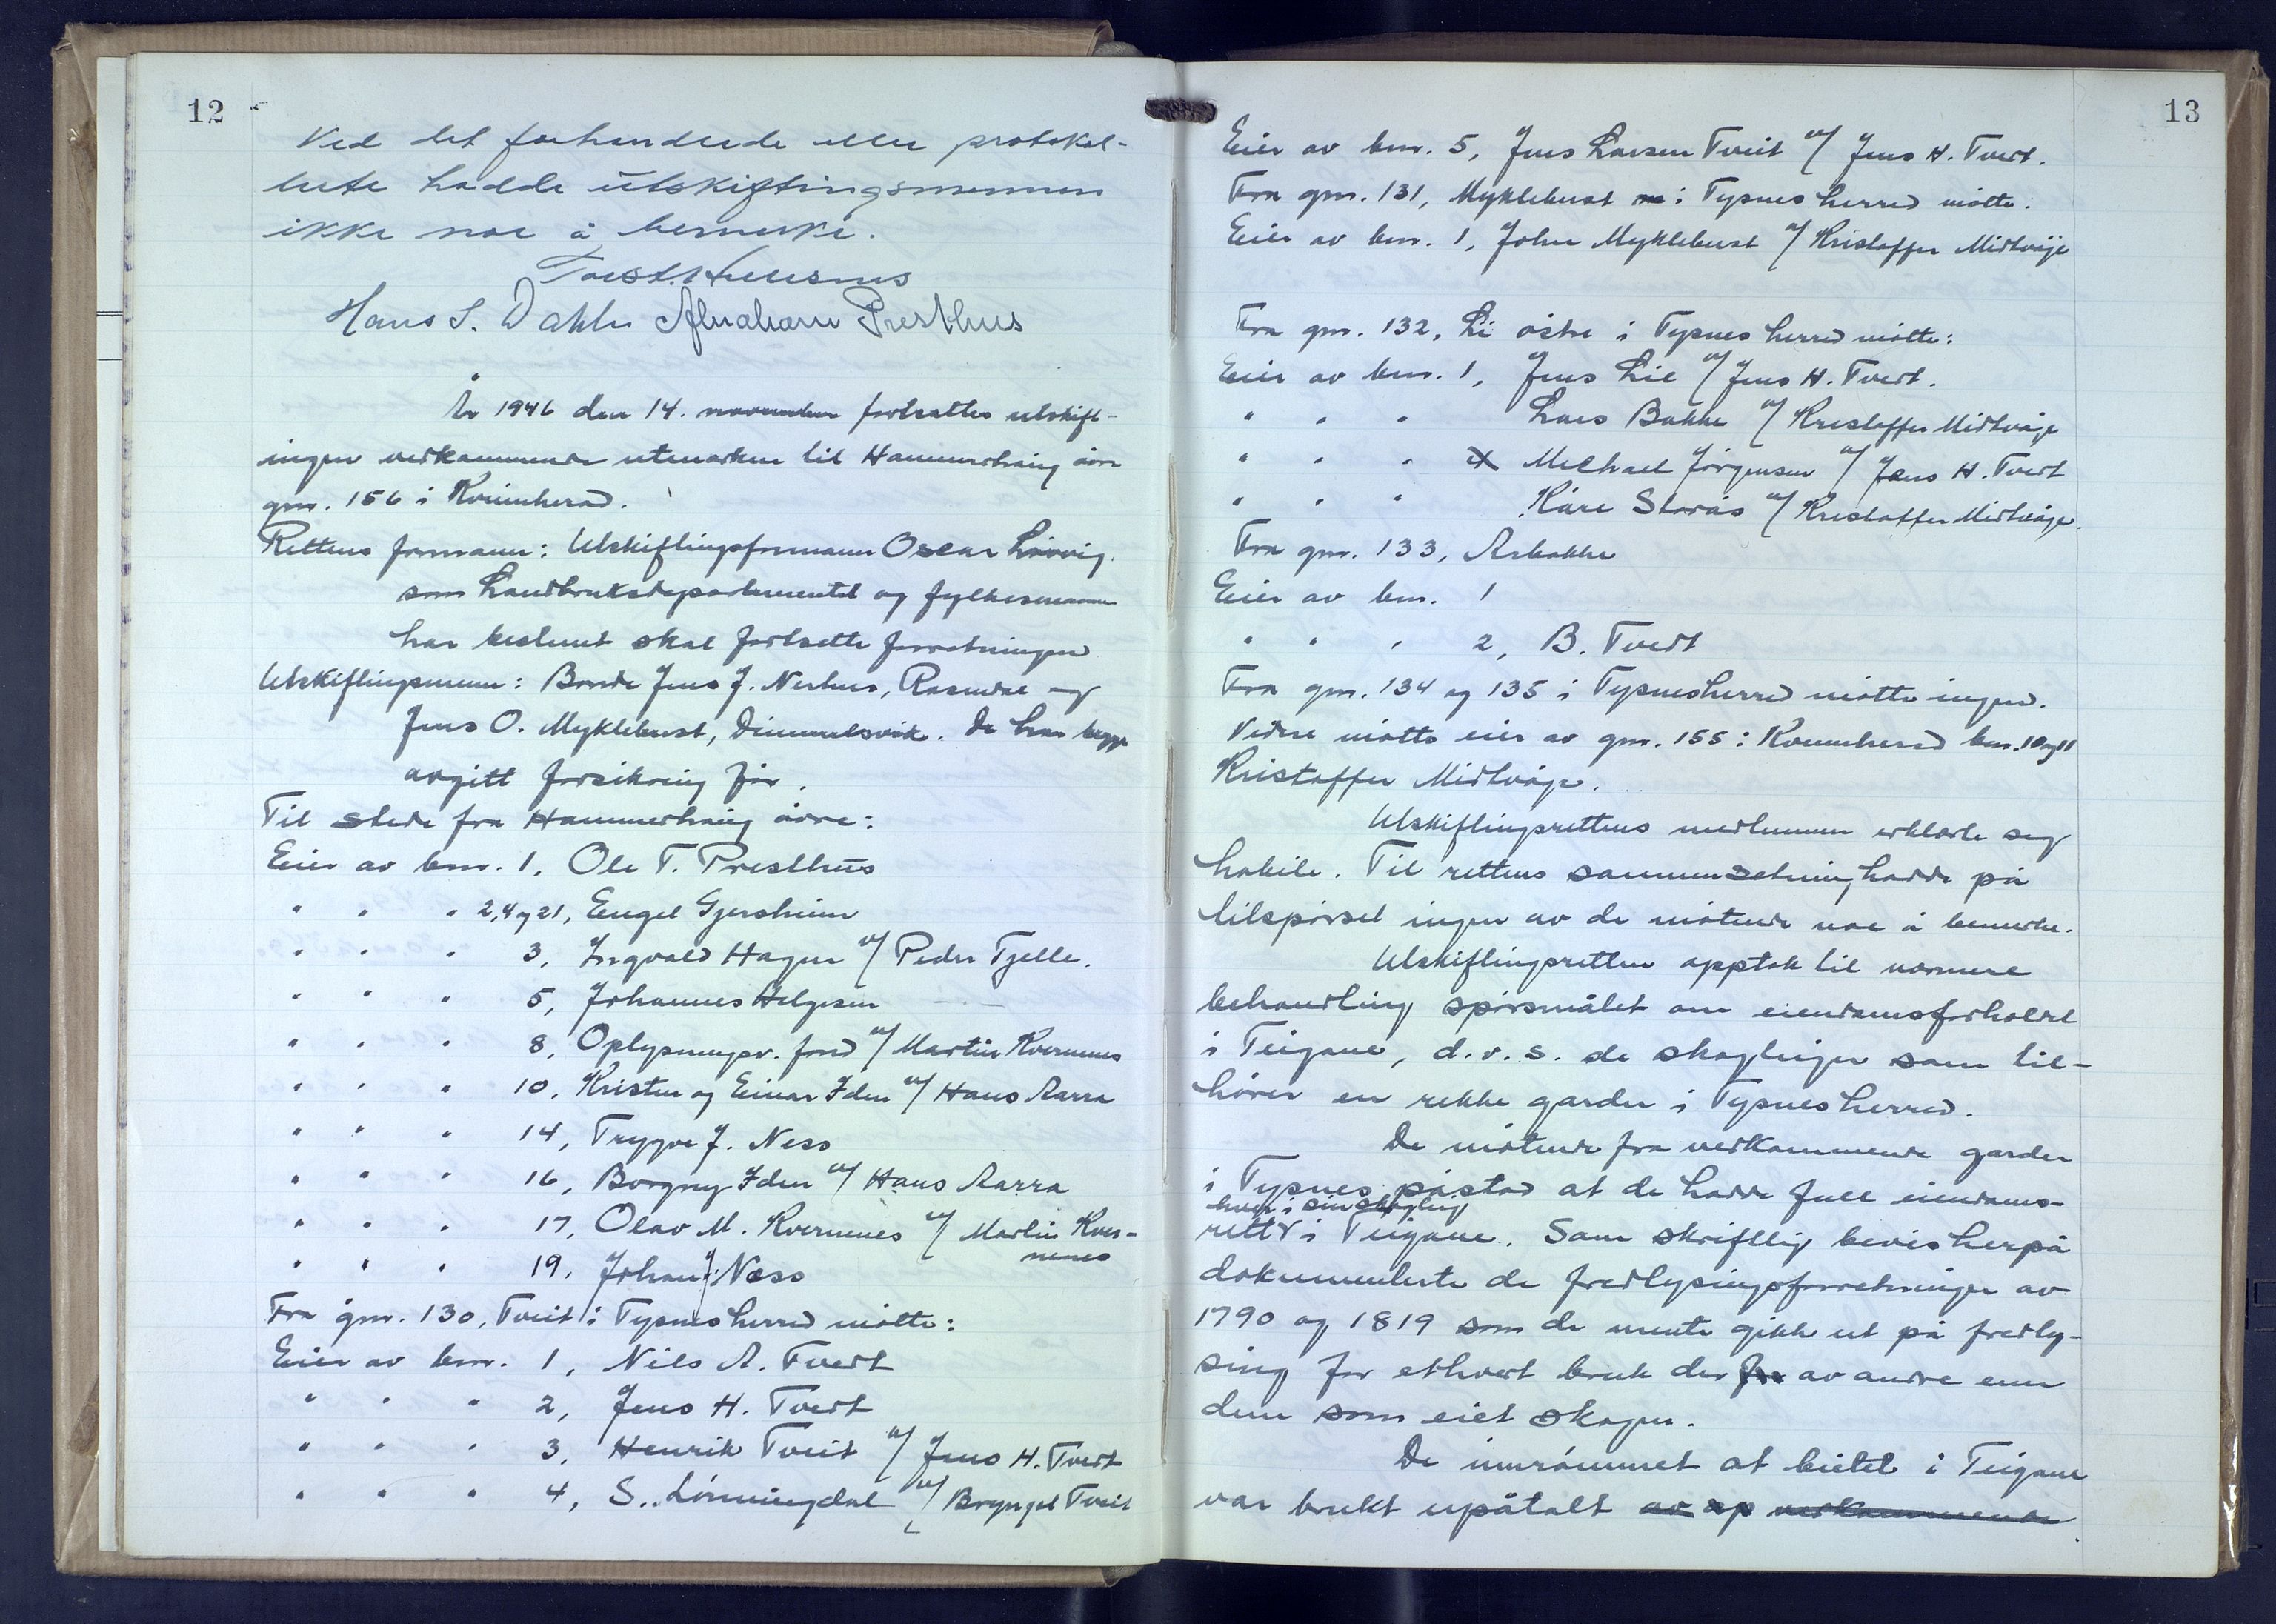 12
Ved det forhandlede eller protokol-
lerte hadde utskiftingsmennene
ikke noe å bemerke.
Hans S. Dahle Abraham Presthus
År 1946 den 14. november fortsattes utskift-
ingen vedkommende utmarken til Hammerhaug øvre
gnr. 156 i Kvinnherad.
Rettens formann: Utskiftingsformann Oscar Løvvig.
som Landbruksdepartementet og fylkesmann
har bestemt skal fortsette forretningen
Utskiftingsmenn: Bonde Jens J. Nerhus, Rosendal og
Jens O. Myklebust, Dimmelsvik. De har begge
avgitt forsikring før.
Til stede fra Hammerhaug øvre:
Eier av bnr. 1, Ole T. Presthus
" " " 2,4 og 21, Engel Gjersheim
" " " 3, Ingvald Hagen v/ Peder Tjelle.
" " " 5, Johannes Helgesen
" " " 8, Oplysningsv. fond v/ Martin Kvernenes
" " " 10, Kristen og Einar Iden v/ Hans Aarra
" " " 14, Trygve J. Ness
" " " 16, Borgny Iden v/ Hans Aarra
" " " 17, Olav M. Kvernenes v/ Martin Kver-
nenes
" " " 19, Johan J. Ness
Fra gnr. 130, Tveit i Tysnes herred møtte:
Eier av bnr. 1, Nils A. Tvedt
" " " 2, Jens H. Tvedt
" " " 3, Henrik Tveit v/ Jens H. Tvedt
" " " 4, S. Lønningdal v/ Brynjel Tveit
13
Eier av bnr. 5, Jens Larsen Tveit v/ Jens H. Tvedt.
Fra gnr. 131, Myklebust i Tysnes herred møtte.
Eier av bnr. 1, John Myklebust v/ Kristoffer Midtvåge
Fra gnr. 132, Li østre i Tysnes herred møtte:
Eier av bnr. 1, Jens Lie v/ Jens H. Tvedt.
" " " Lars Bakke v/ Kristoffer Midtvåge
" " " Michael Jørgensen v/ Jens H. Tvedt
" " " Kåre Storås v/ Kristoffer Midtvåge.
Fra gnr. 133, Arbakke
Eier av bnr. 1
" " " 2, B. Tvedt
Fra gnr. 134 og 135 i Tysnes herred møtte ingen.
Videre møtte eier av gnr. 155 i Kvinnherad bnr. 10 og 11
Kristoffer Midtvåge.
Utskiftingsrettens medlemmer erklærte seg
habile. Til rettens sammensetning hadde på
tilspørsel ingen av de møtende noe å bemerke.
Utskiftingsretten opptok til nærmere
behandling spørsmålet om eiendomsforholdet
i Teigane, d.v.s. de skogteiger som til-
hører en rekke garder i Tysnes herred.
De møtende fra vedkommende garder
i Tysnes påstod at de hadde full eiendoms-
hver i sin skogteig
rett i Teigane. Som skriftlig bevis herpå
dokumenterte de fredlysingsforretninger av
1790 og 1819 som de mente gikk ut på fredly-
sing for ethvert bruk der fra av andre enn
dem som eiet skogen.
De innrømmet at beitet i Teigane
var brukt upåtalt av op vedkommende